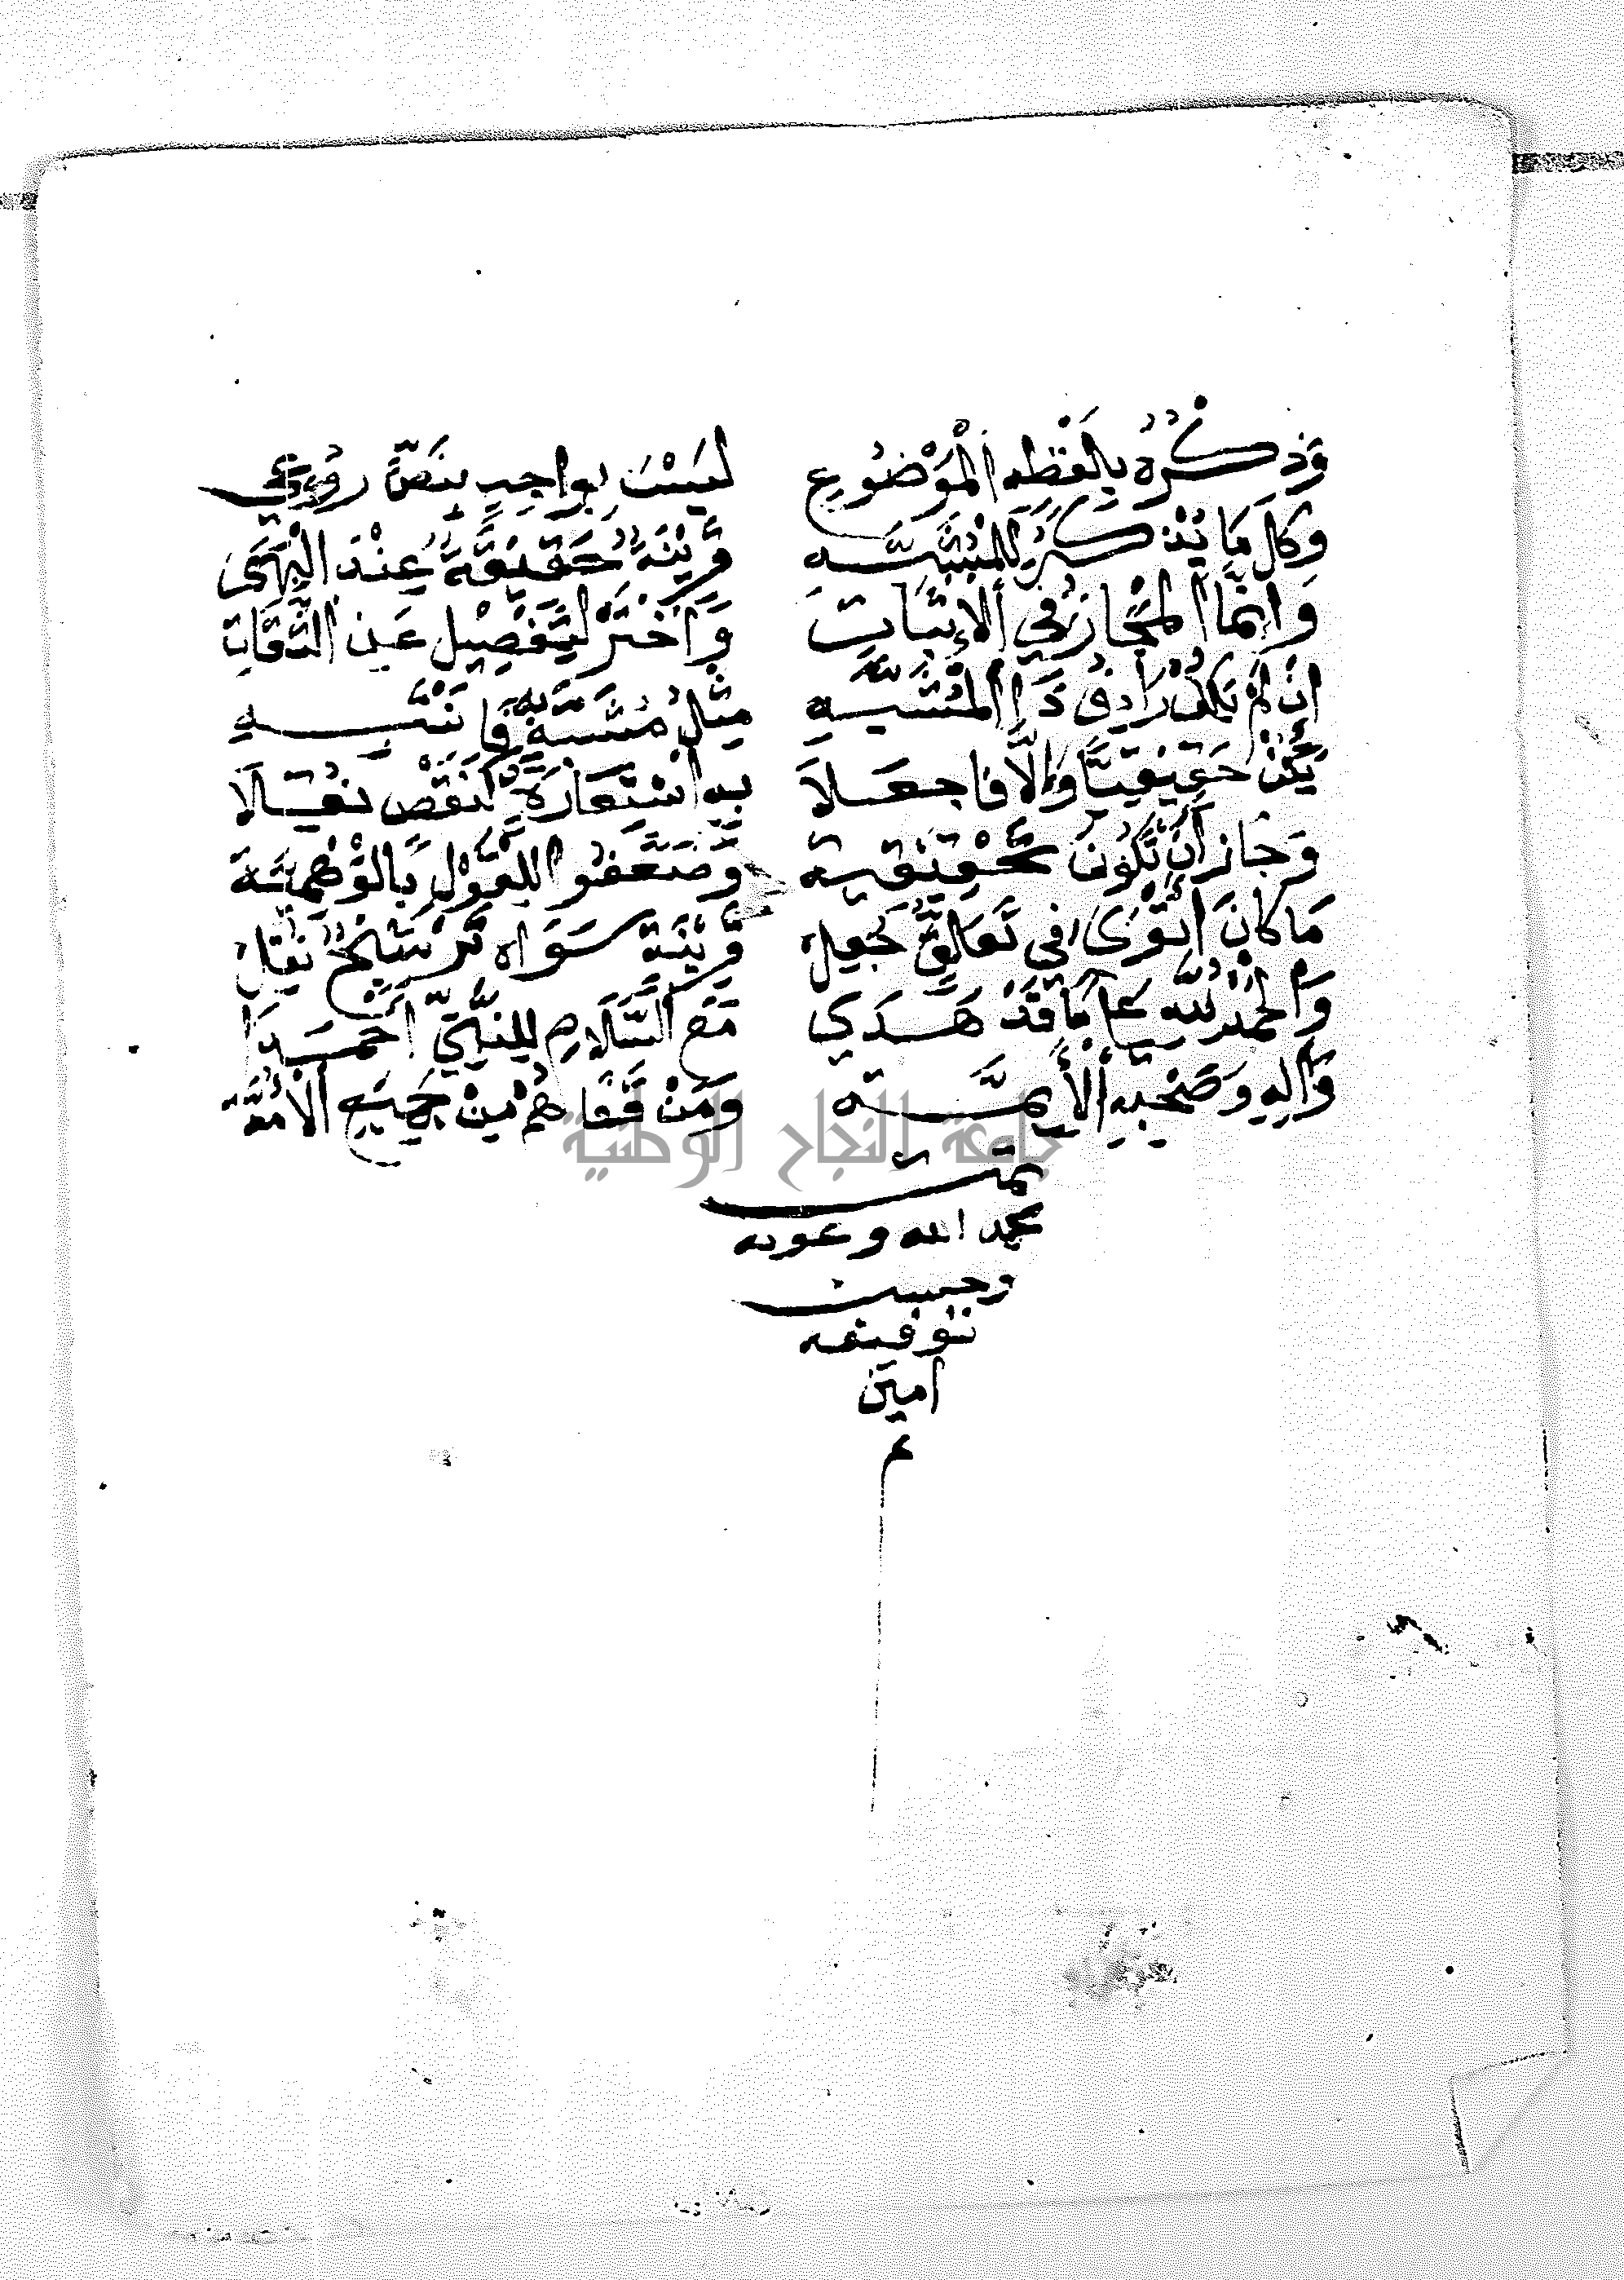 وَذِكْرُهُ بِلَفْظِهِ الْمَوْضُوعِ لَيْسَتْ بِوَاجِبٍ بِنَصٍّ رُوعِي
وَكُلُّ مَا يُذْكَرُ لِلْمُشَبَّهِ قَرِينَةً حَقِيقَةٌ عِنْدَ
وَإِنَّمَا الْمَجَازُ فِي الْإِثْبَاتِ وَاخْتَرْ لِتَفْصِيلٍ عَنِ الثِّقَاتِ
إِنْ لَمْ يَكُنْ رَادِفُ ذَا الْمُشَبَّهِ مِثْلُ مُشَبَّهٍ فَانْتَبِهِ
يَكُنْ حَقِيقِيًّا وَإِلَّا فَاجْعَلَا بِهِ اسْتِعَارَةً لِنَقْصٍ نُقِلَا
وَجَازَ أَنْ تَكُونَ تَحْقِيقِيَّه وَضَعَّفُوا لِلْقَوْلِ بِالْوَهْمِيَّه
مَا كَانَ أَقْوَى فِي تَعَلُّقٍ جُعِلْ قَرِينَةً سَوَاهُ تَرْشِيحٌ نُقِلْ
وَالْحَمْدُ لِلَّهِ عَلَى مَا قَدْ هَدَى مَعَ السَّلَامِ لِلنَّبِيِّ أَحْمَدَا
وَآلِهِ وَصَحْبِهِ الْأَئِمَّه وَمَنْ قَفَاهُمْ مِنْ جَمِيعِ الْأُمَّه
تمت
بحمد الله وعونه
وحسن
توفيقه
امين
م
جامعة النجاح الوطنية